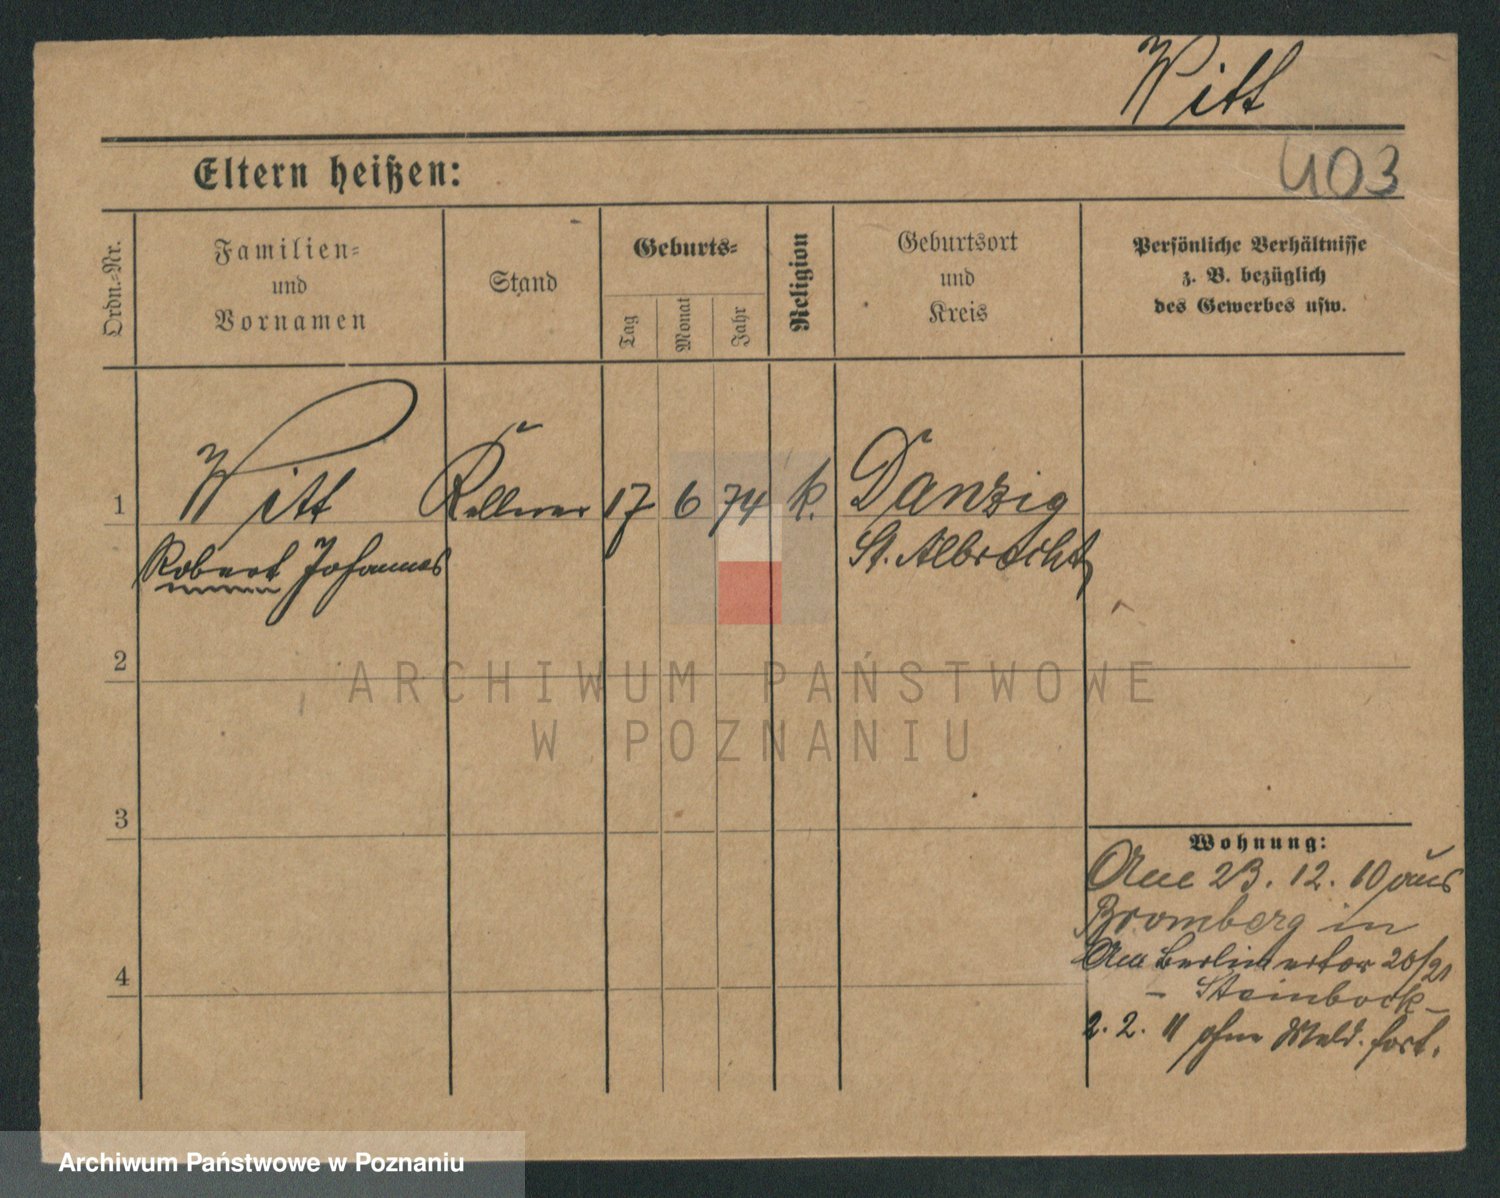 Witt
Eltern heißen:
403
Ordn.-Nr.
Familien-
und
Vornamen
Stand
Geburts-
Tag
Monat
Jahr
Religion
Geburtsort
und
Kreis
Persönliche Verhältnisse
z. B. bezüglich
des Gewerbes usw.
1
Witt Kellner 17 6 74 k. Danzig
Robert Johannes St. Albrecht
2
ARCHIWUM PAŃSTWOWE
W POZNANIU
3
4
Wohnung:
Am 23. 12. 10 aus
Bromberg in
Am Berlinertor 20/21
- Steinbock -
2. 2. 11 ohne Meld. fort.
Archiwum Państwowe w Poznaniu